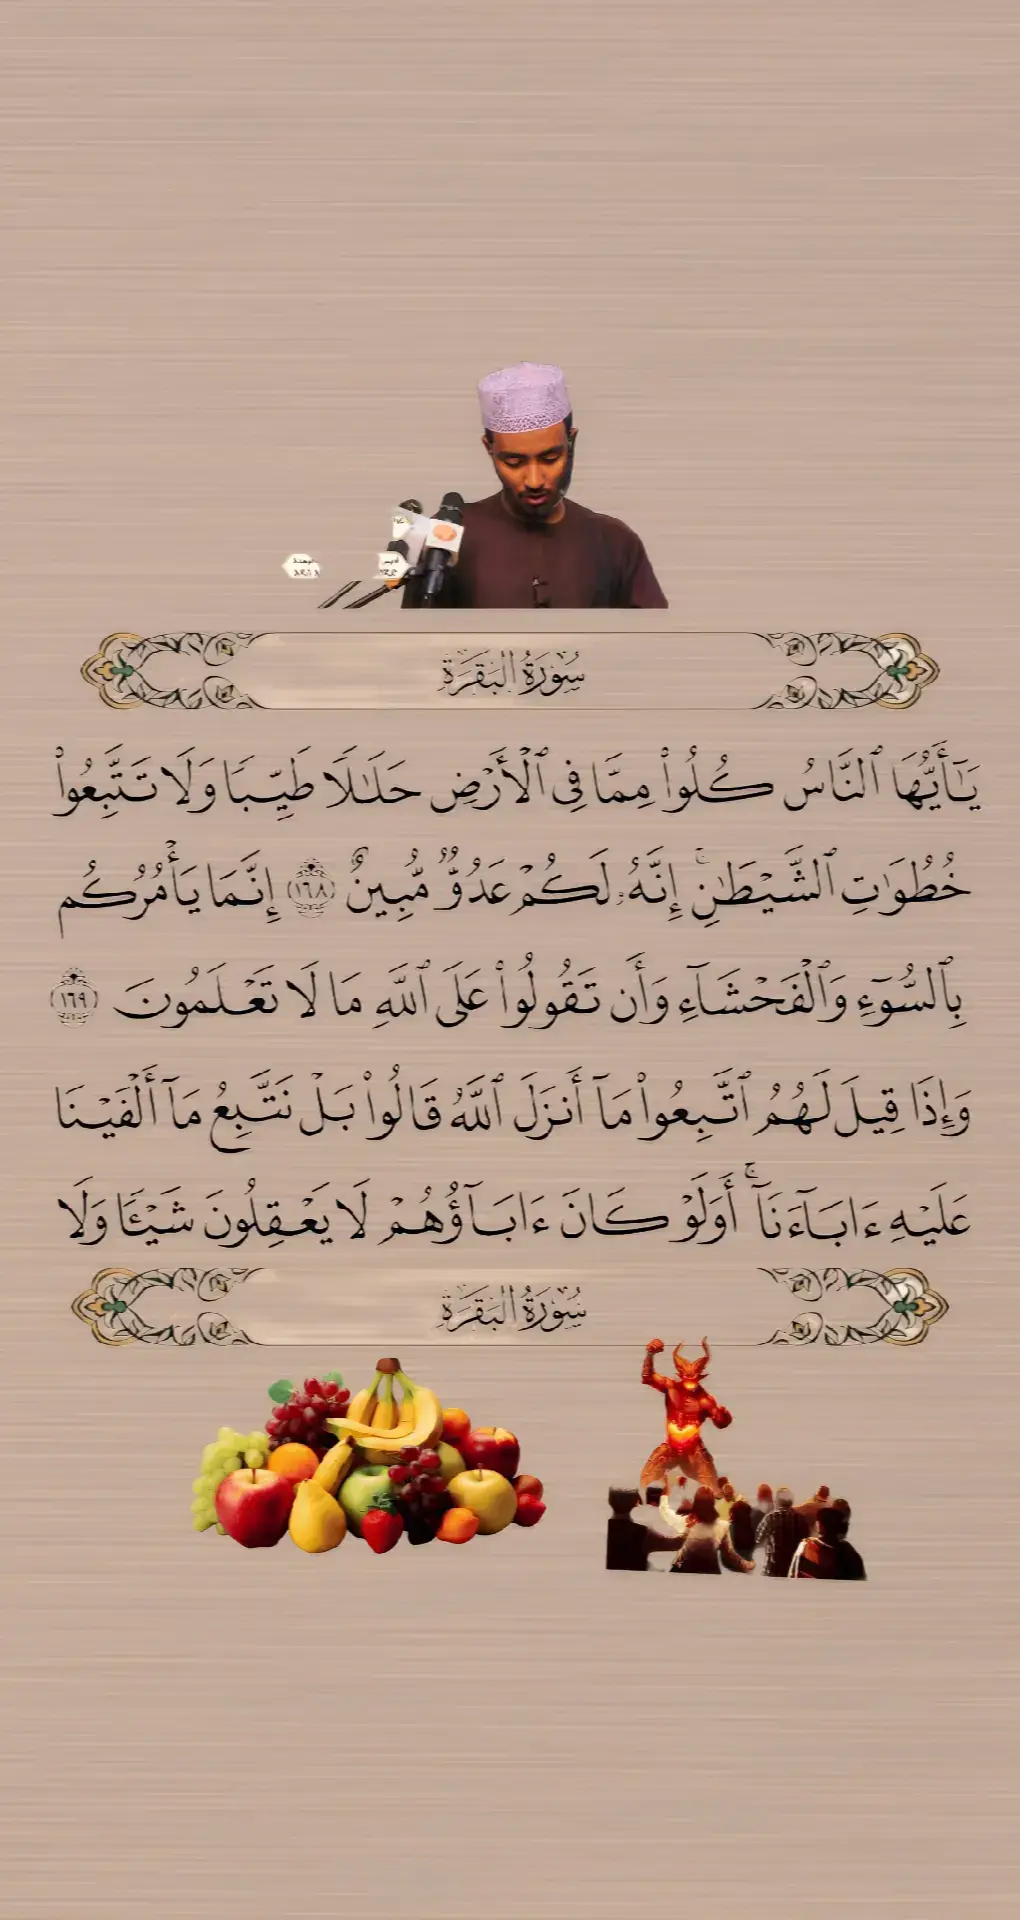 سُورَةُ البَقَرَةِ
يَـٰٓأَيُّهَا ٱلنَّاسُ كُلُوا۟ مِمَّا فِى ٱلْأَرْضِ حَلَـٰلًا طَيِّبًا وَلَا تَتَّبِعُوا۟
خُطُوَٰتِ ٱلشَّيْطَـٰنِ ۚ إِنَّهُۥ لَكُمْ عَدُوٌّ مُّبِينٌ ١٦٨ إِنَّمَا يَأْمُرُكُم
بِٱلسُّوٓءِ وَٱلْفَحْشَآءِ وَأَن تَقُولُوا۟ عَلَى ٱللَّهِ مَا لَا تَعْلَمُونَ ١٦٩
وَإِذَا قِيلَ لَهُمُ ٱتَّبِعُوا۟ مَآ أَنزَلَ ٱللَّهُ قَالُوا۟ بَلْ نَتَّبِعُ مَآ أَلْفَيْنَا
عَلَيْهِ ءَابَآءَنَآ ۚ أَوَلَوْ كَانَ ءَابَآؤُهُمْ لَا يَعْقِلُونَ شَيْـًٔا وَلَا
سُورَةُ البَقَرَةِ